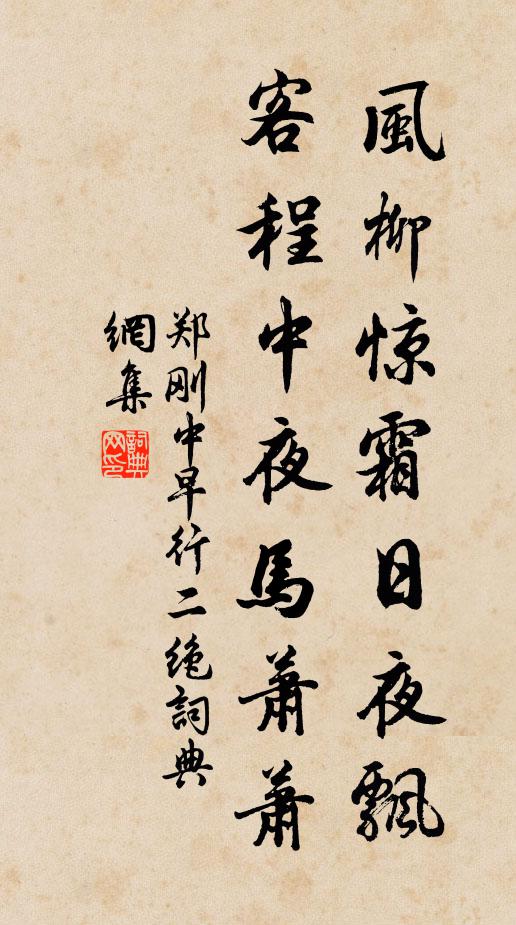 風柳惊霜日夜飄
客程中夜馬蕭蕭
郑刚中早行二绝詞典
網集
詞典
网印